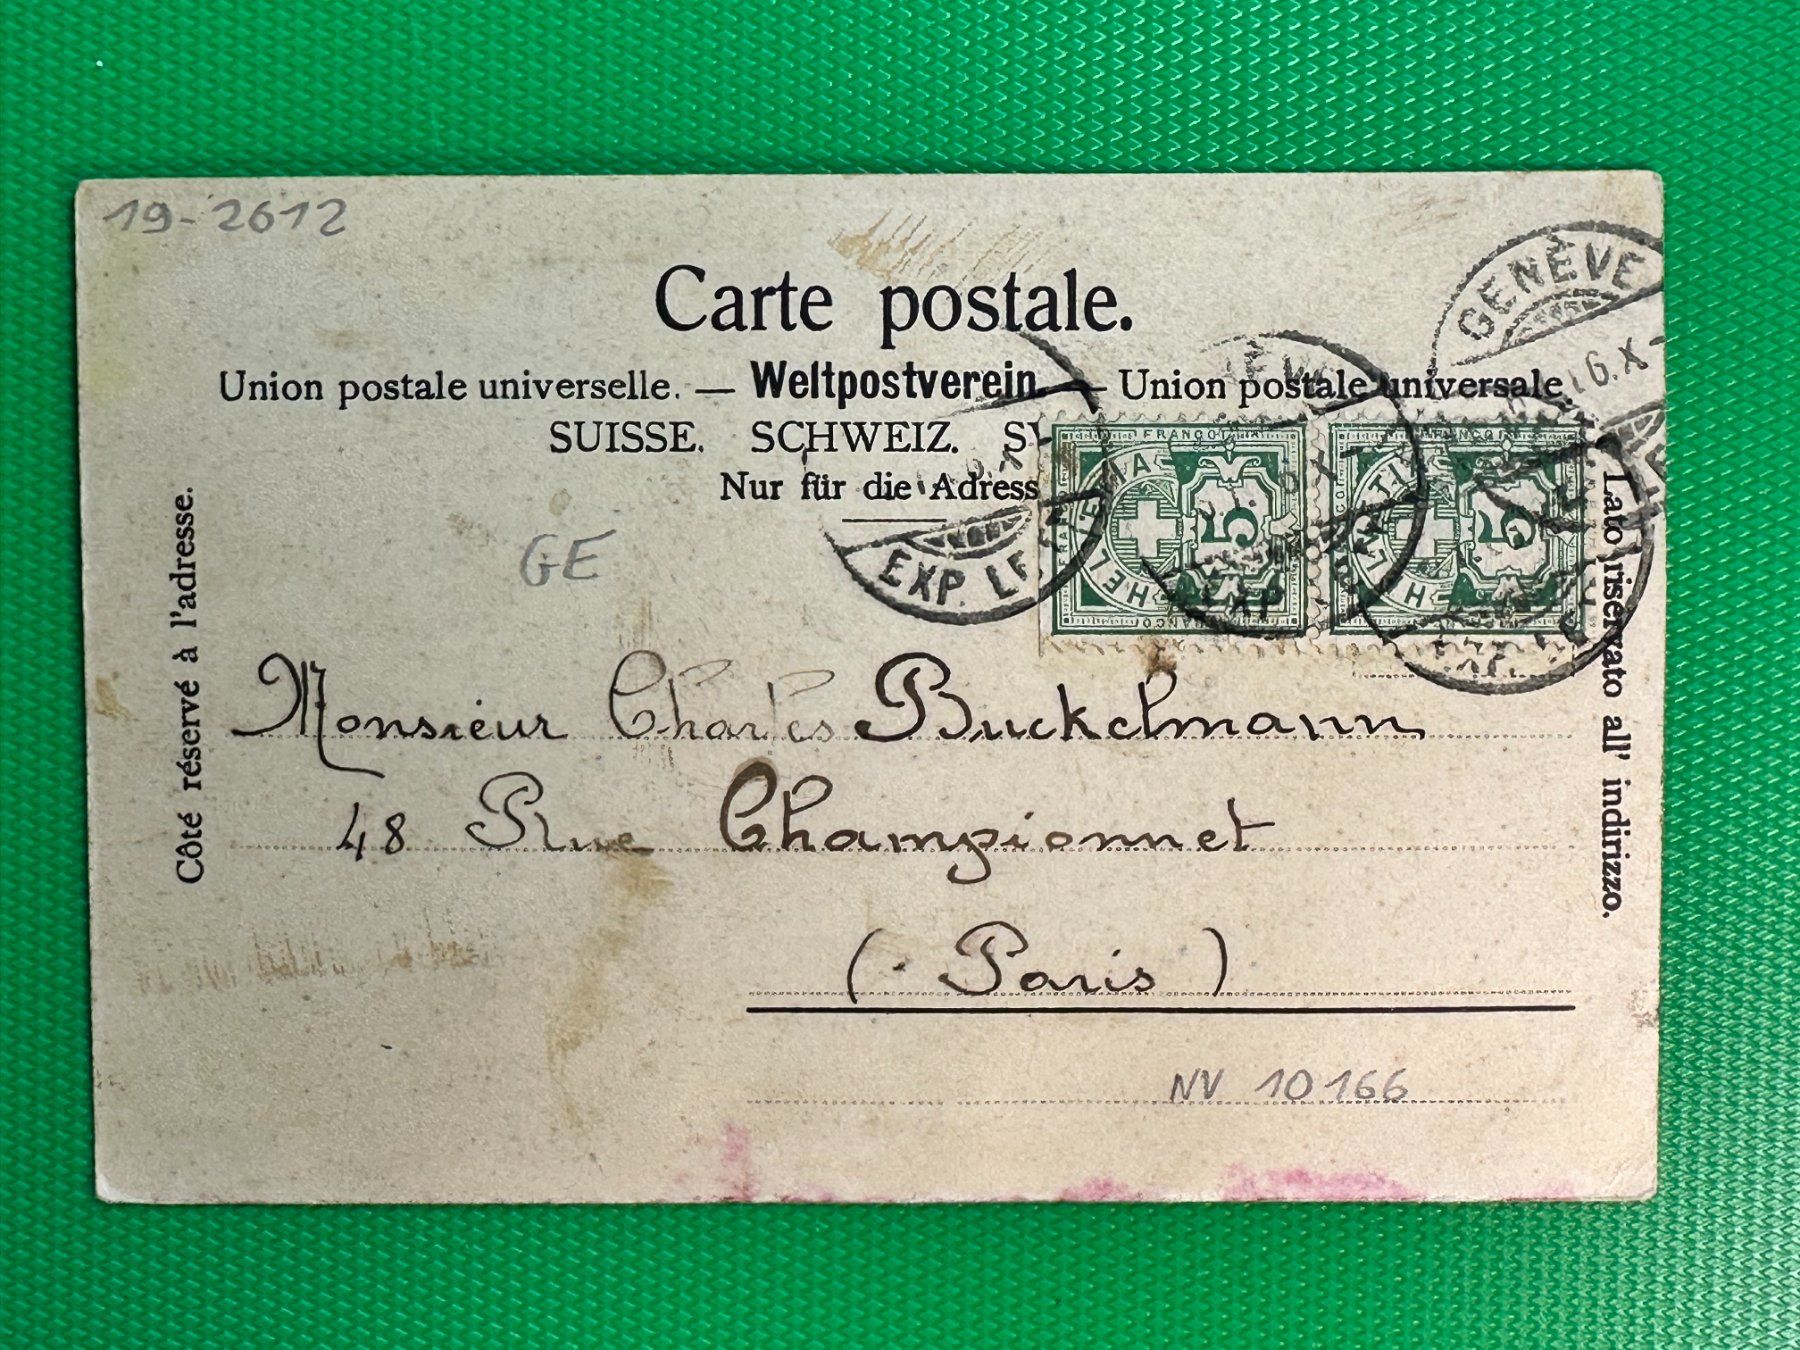 19-2612
Carte postale.
Union postale universelle. — Weltpostverein. — Union postale universale.
SUISSE. SCHWEIZ. SV
Nur für die Adress
GENÈVE
EXP. LE
HELVETIA
FRANCO
5
HELVETIA
FRANCO
5
Côté réservé à l'adresse.
Lato riservato all' indirizzo.
GE
Monsieur Charles Buckelmann
48 Rue Championnet
( Paris )
NV 10166